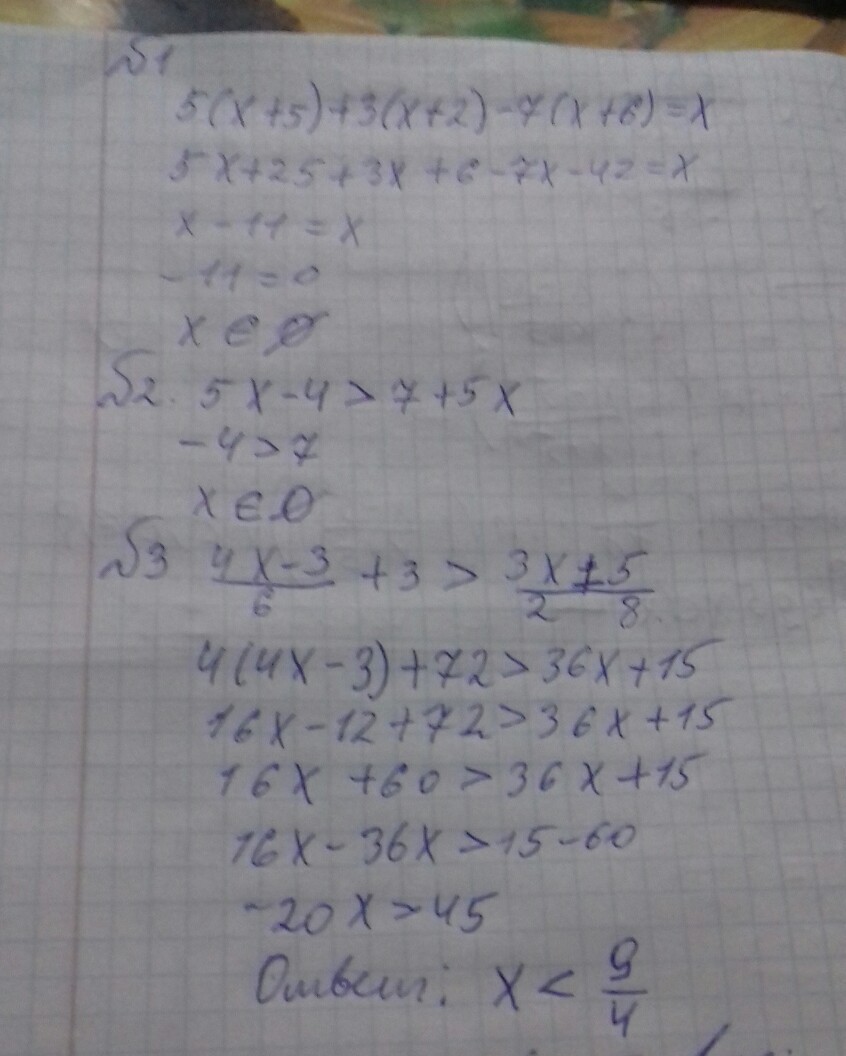 №1
5(x+5)+3(x+2)-7(x+6)=x
5x+25+3x+6-7x-42=x
x-11=x
-11=0
x∈∅
№2. 5x-4>7+5x
-4>7
x∈∅
№3 (4x-3)/6 + 3 > 3x/2 + 5/8
4(4x-3)+72>36x+15
16x-12+72>36x+15
16x+60>36x+15
16x-36x>15-60
-20x>45
Ответ: x < 9/4